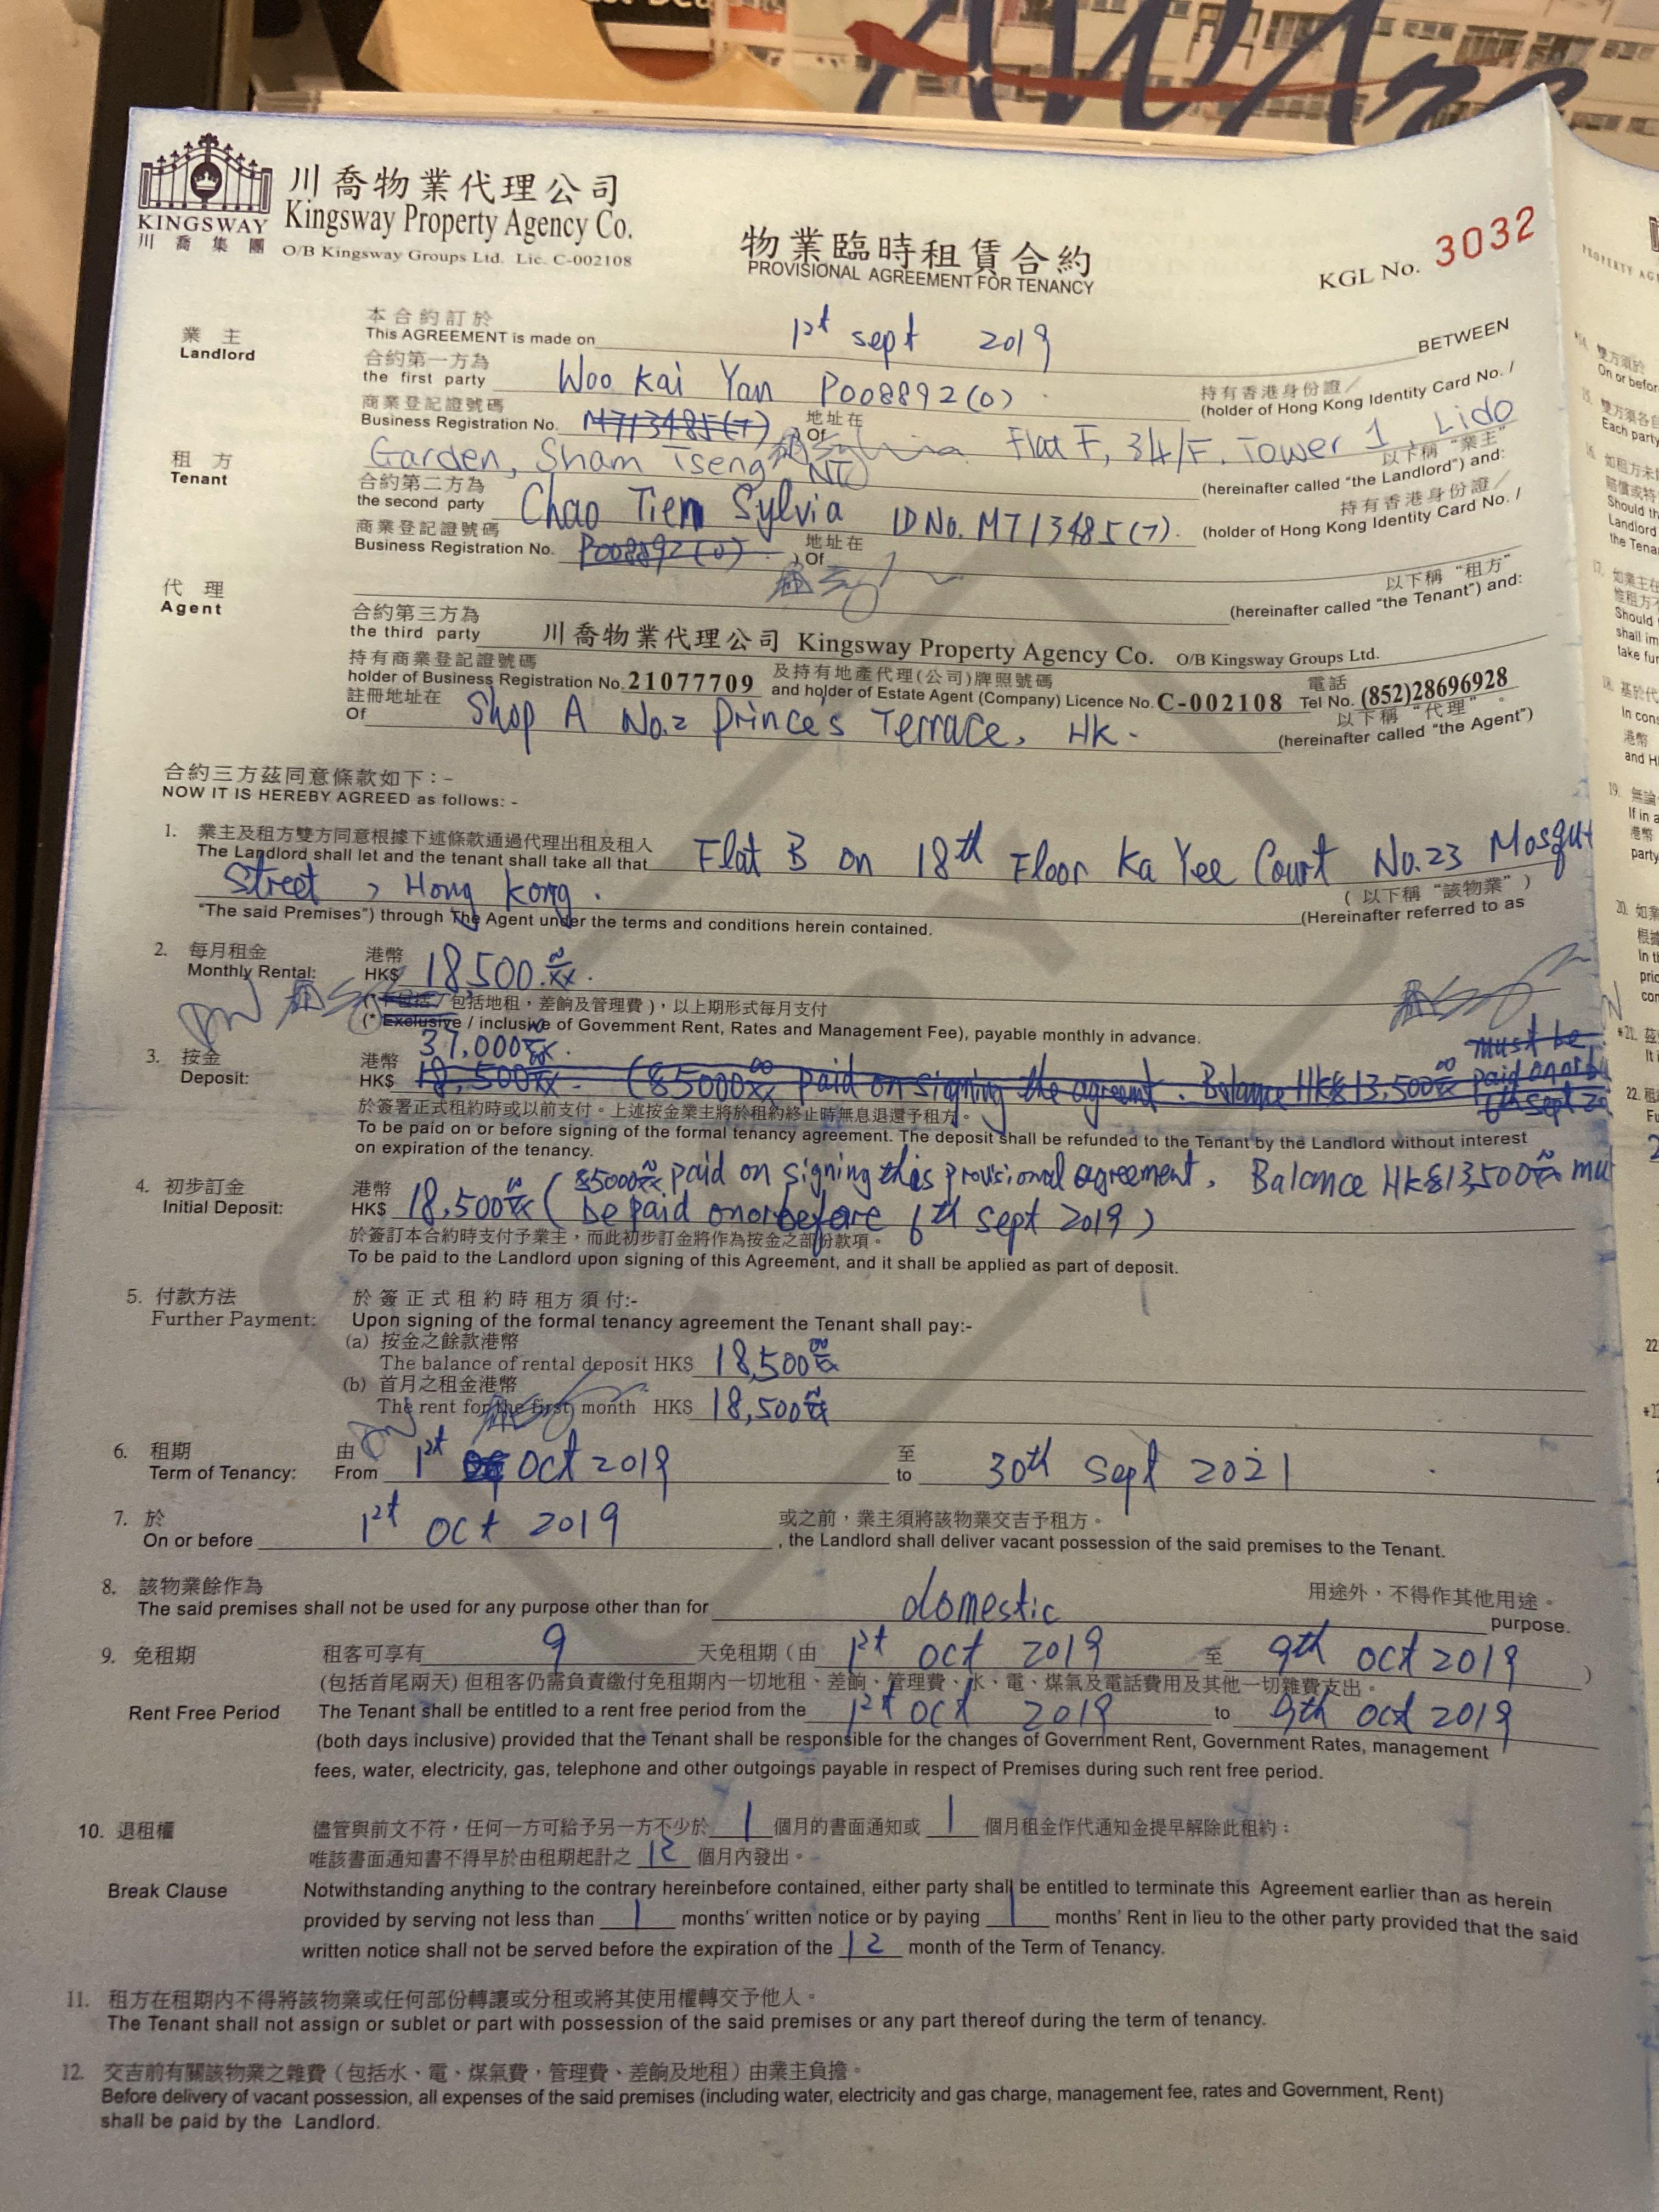 川喬物業代理公司
KINGSWAY
川喬集團
Kingsway Property Agency Co.
O/B Kingsway Groups Ltd. Lic. C-002108
物業臨時租賃合約
PROVISIONAL AGREEMENT FOR TENANCY
KGL No. 3032
業主
Landlord
本合約訂於
This AGREEMENT is made on 1st sept 2019 BETWEEN
合約第一方為
the first party Woo Kai Yan P008892(0)
持有香港身份證/
(holder of Hong Kong Identity Card No. /
商業登記證號碼
Business Registration No. M713485(7) ) 地址在 Of Flat F, 34/F. Tower 1 Lido
Garden, Sham Tseng NT
以下稱 "業主"
(hereinafter called "the Landlord") and:
租方
Tenant
合約第二方為
the second party Chao Tien Sylvia ID No. M713485(7).
持有香港身份證/
(holder of Hong Kong Identity Card No. /
商業登記證號碼
Business Registration No. P008892(0) ) 地址在 Of
以下稱 "租方"
(hereinafter called "the Tenant") and:
代理
Agent
合約第三方為
the third party 川喬物業代理公司 Kingsway Property Agency Co. O/B Kingsway Groups Ltd.
持有商業登記證號碼 及持有地產代理(公司)牌照號碼 電話
holder of Business Registration No. 21077709 and holder of Estate Agent (Company) Licence No. C-002108 Tel No. (852)28696928
註冊地址在 以下稱 "代理"。
Of Shop A No.2 Prince's Terrace, HK. (hereinafter called "the Agent")
合約三方茲同意條款如下:-
NOW IT IS HEREBY AGREED as follows: -
1. 業主及租方雙方同意根據下述條款通過代理出租及租入
The Landlord shall let and the tenant shall take all that Flat B on 18th Floor Ka Yee Court No.23 Mosqu
Street, Hong Kong. ( 以下稱 "該物業" )
"The said Premises") through the Agent under the terms and conditions herein contained. (Hereinafter referred to as
2. 每月租金 港幣
Monthly Rental: HK$ 18,500.00/xx.
(*不包括/包括地租,差餉及管理費),以上期形式每月支付
(* Exclusive / inclusive of Government Rent, Rates and Management Fee), payable monthly in advance.
37,000 00/xx.
3. 按金 港幣 must be
Deposit: HK$ 18,500 xx. ($5000 00/xx paid on signing the agreement. Balance HK$13,500 00/xx paid on or b
6th sept 20
於簽署正式租約時或以前支付。上述按金業主將於租約終止時無息退還予租方。
To be paid on or before signing of the formal tenancy agreement. The deposit shall be refunded to the Tenant by the Landlord without interest
on expiration of the tenancy.
4. 初步訂金 港幣 $5000 00/xx paid on signing this provisional agreement, Balance HK$13,500 00/xx mu
Initial Deposit: HK$ 18,500 00/xx ( be paid on or before 6th sept 2019 )
於簽訂本合約時支付予業主,而此初步訂金將作為按金之部份款項。
To be paid to the Landlord upon signing of this Agreement, and it shall be applied as part of deposit.
5. 付款方法 於簽正式租約時租方須付:-
Further Payment: Upon signing of the formal tenancy agreement the Tenant shall pay:-
(a) 按金之餘款港幣
The balance of rental deposit HK$ 18,500 00/xx
(b) 首月之租金港幣
The rent for the first month HK$ 18,500 00/xx
6. 租期 由 至
Term of Tenancy: From 1st Oct 2019 to 30th Sept 2021
7. 於 或之前,業主須將該物業交吉予租方。
On or before 1st Oct 2019 , the Landlord shall deliver vacant possession of the said premises to the Tenant.
8. 該物業餘作為 用途外,不得作其他用途。
The said premises shall not be used for any purpose other than for domestic purpose.
9. 免租期 租客可享有 9 天免租期(由 1st Oct 2019 至 9th Oct 2019 )
(包括首尾兩天) 但租客仍需負責繳付免租期內一切地租、差餉、管理費、水、電、煤氣及電話費用及其他一切雜費支出。
Rent Free Period The Tenant shall be entitled to a rent free period from the 1st Oct 2019 to 9th Oct 2019
(both days inclusive) provided that the Tenant shall be responsible for the changes of Government Rent, Government Rates, management
fees, water, electricity, gas, telephone and other outgoings payable in respect of Premises during such rent free period.
10. 退租權 儘管與前文不符,任何一方可給予另一方不少於 1 個月的書面通知或 1 個月租金作代通知金提早解除此租約:
唯該書面通知書不得早於由租期起計之 12 個月內發出。
Break Clause Notwithstanding anything to the contrary hereinbefore contained, either party shall be entitled to terminate this Agreement earlier than as herein
provided by serving not less than 1 months' written notice or by paying 1 months' Rent in lieu to the other party provided that the said
written notice shall not be served before the expiration of the 12 month of the Term of Tenancy.
11. 租方在租期內不得將該物業或任何部份轉讓或分租或將其使用權轉交予他人。
The Tenant shall not assign or sublet or part with possession of the said premises or any part thereof during the term of tenancy.
12. 交吉前有關該物業之雜費(包括水、電、煤氣費,管理費、差餉及地租)由業主負擔。
Before delivery of vacant possession, all expenses of the said premises (including water, electricity and gas charge, management fee, rates and Government, Rent)
shall be paid by the Landlord.